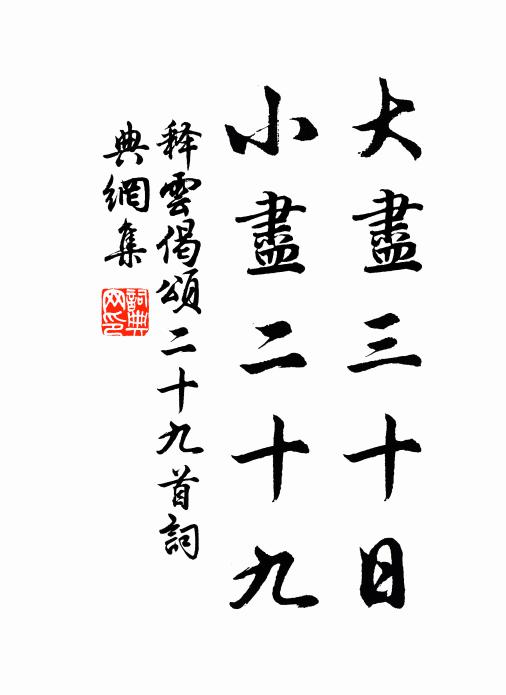 大盡三十日
小盡二十九
释雲偈頌二十九首詞
典網集
詞典
网印